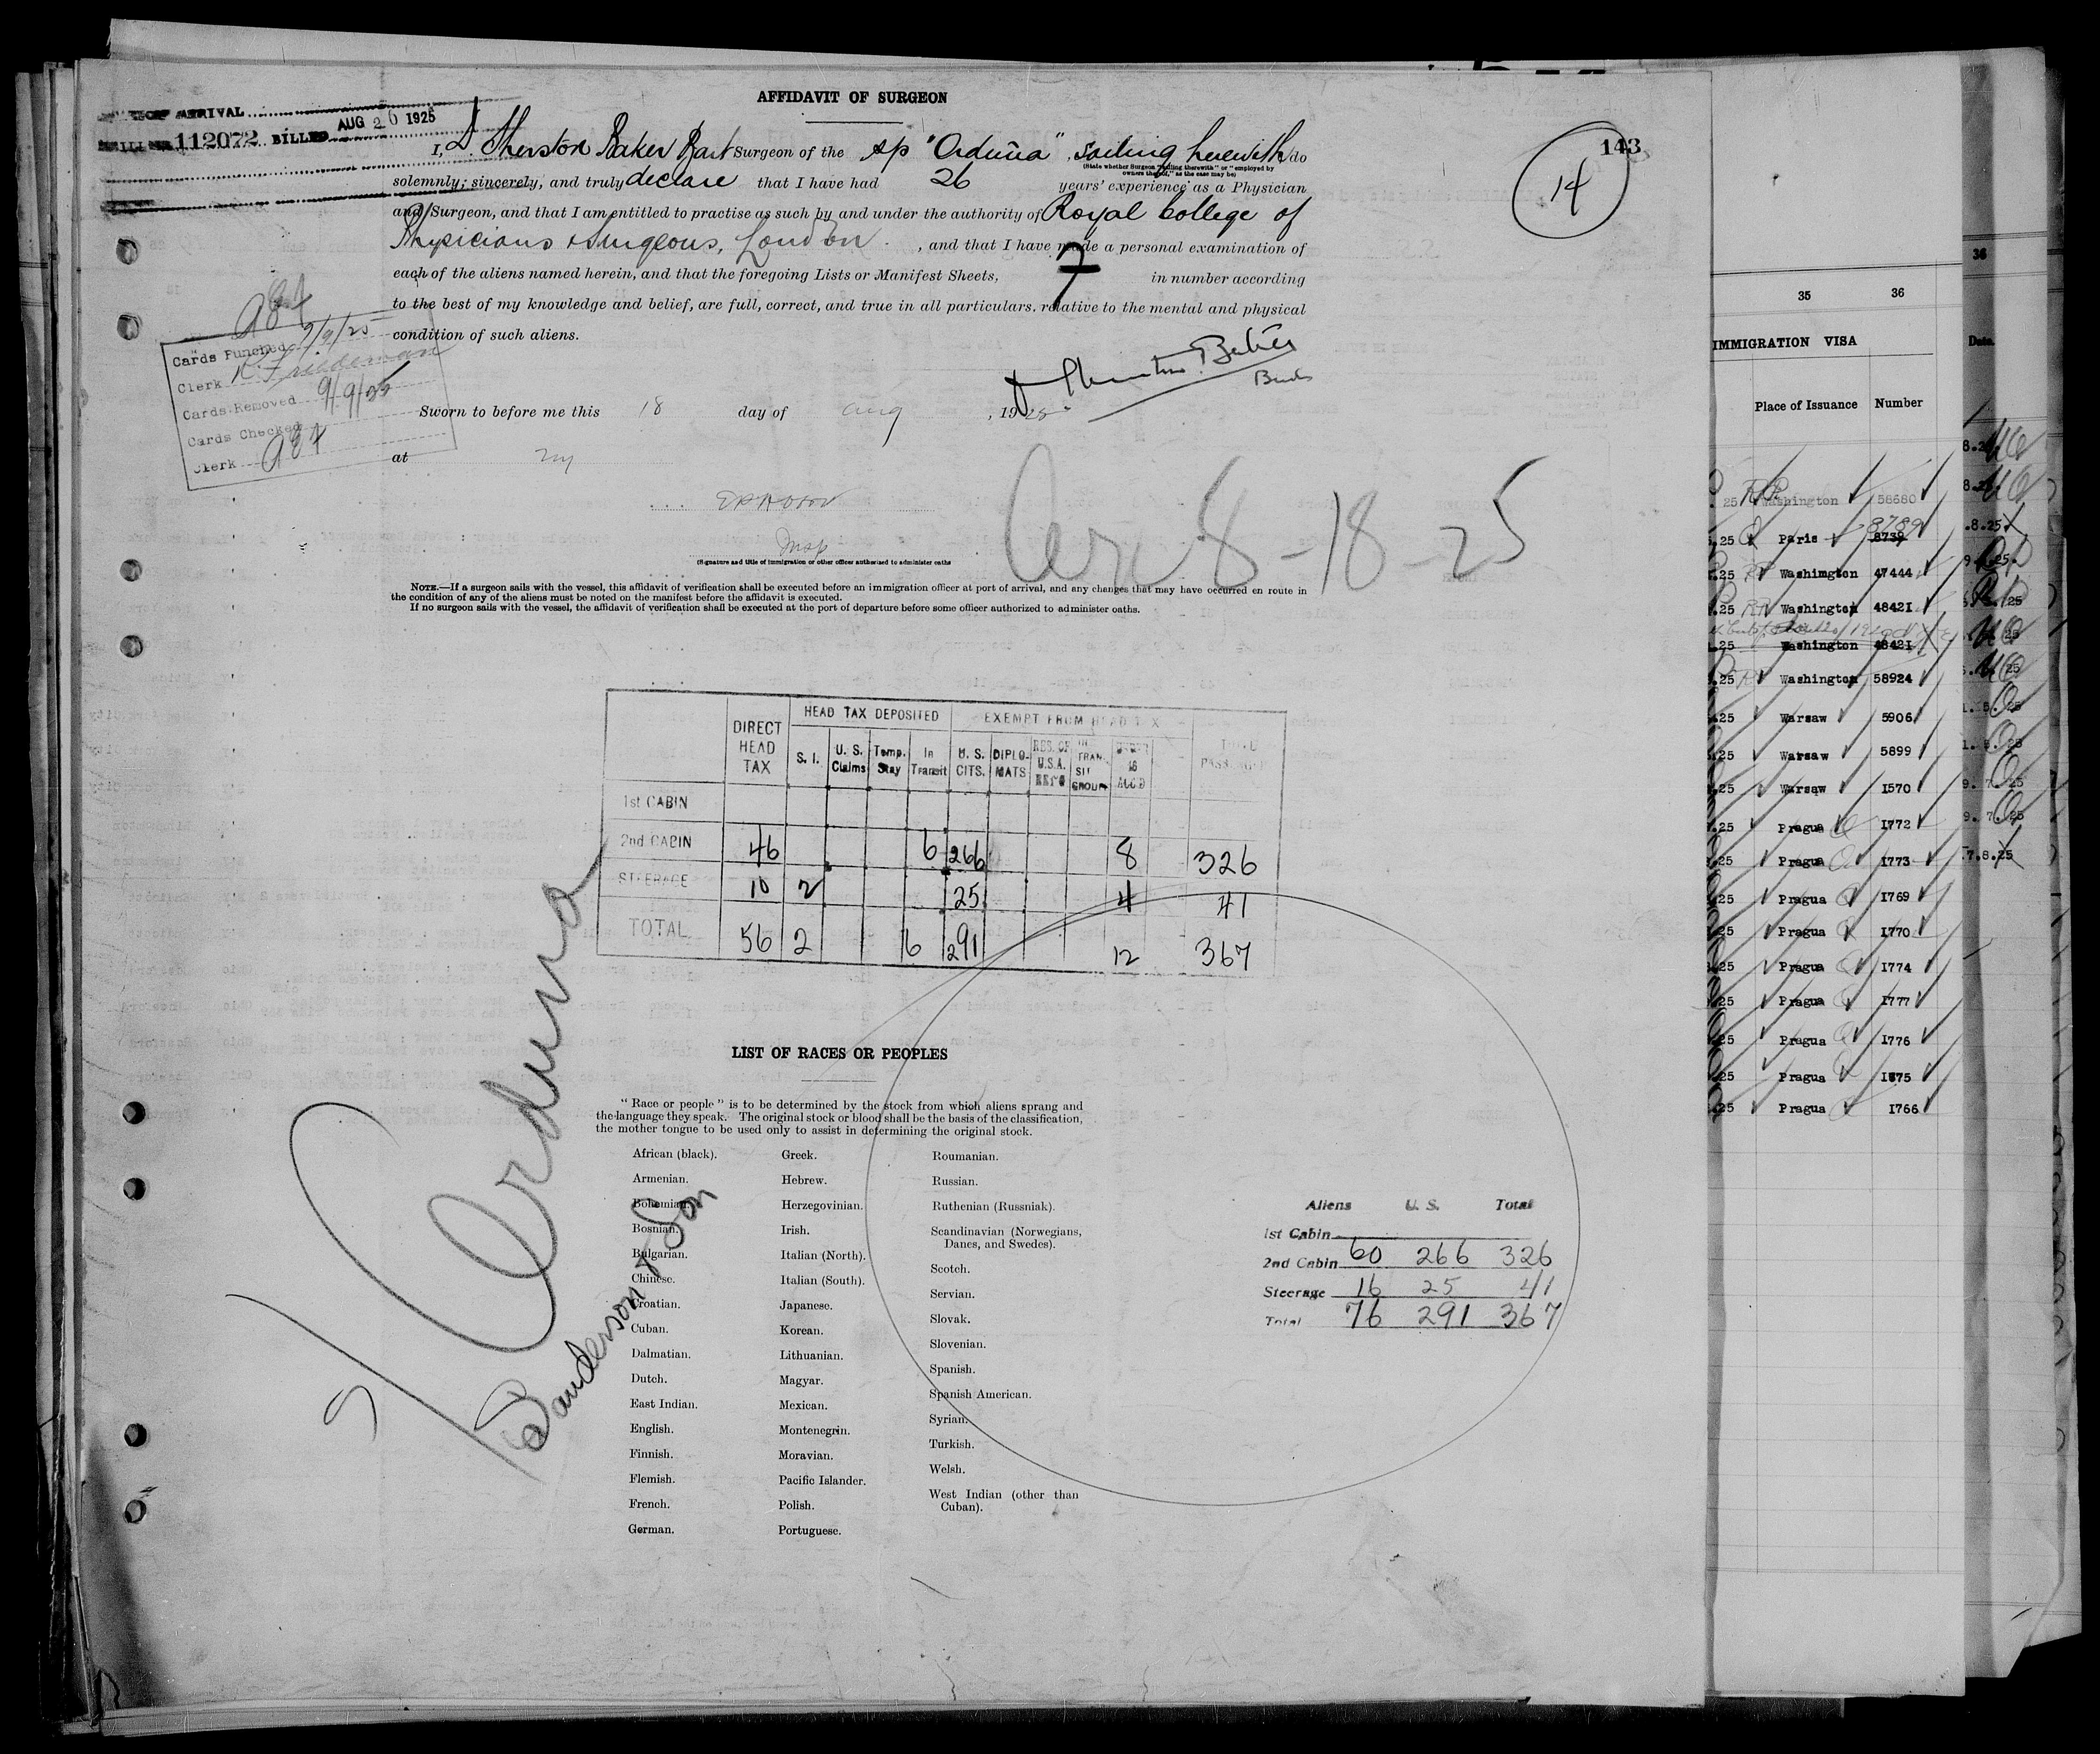 AFFIDAVIT OF SURGEON
ARRIVAL
112072 BILLED AUG 26 1925
143
14
I, D. Sherston Baker Bart Surgeon of the sp "Orduña", sailing herewith do
(State whether Surgeon "sailing therewith" or "employed by owners thereof," as the case may be)
solemnly, sincerely, and truly declare that I have had 26 years' experience as a Physician
and Surgeon, and that I am entitled to practise as such by and under the authority of Royal College of
Physicians & Surgeons, London. , and that I have made a personal examination of
each of the aliens named herein, and that the foregoing Lists or Manifest Sheets, 7 in number according
to the best of my knowledge and belief, are full, correct, and true in all particulars, relative to the mental and physical
condition of such aliens.
Cards Punched 9/9/25
Clerk R. Friedeman
Cards Removed 9/9/25
Cards Checked
Clerk
Sworn to before me this 18 day of aug , 1925
at ny
Insp
(Signature and title of immigration or other officer authorised to administer oaths
Arr 8-18-25
NOTE.—If a surgeon sails with the vessel, this affidavit of verification shall be executed before an immigration officer at port of arrival, and any changes that may have occurred en route in
the condition of any of the aliens must be noted on the manifest before the affidavit is executed.
If no surgeon sails with the vessel, the affidavit of verification shall be executed at the port of departure before some officer authorized to administer oaths.
DIRECT HEAD TAX
HEAD TAX DEPOSITED
EXEMPT FROM HEAD TAX
S. I.
U. S. Claims
Temp. Stay
In Transit
U. S. CITS.
DIPLO-MATS
RES. OF U.S.A.
IN TRANSIT GROUP
16 ACC'D
1st CABIN
2nd CABIN 46 6 266 8 326
STEERAGE 10 2 25 4 41
TOTAL 56 2 6 291 12 367
Orduna
Sanderson & Son
LIST OF RACES OR PEOPLES
"Race or people" is to be determined by the stock from which aliens sprang and
the language they speak. The original stock or blood shall be the basis of the classification,
the mother tongue to be used only to assist in determining the original stock.
African (black).
Armenian.
Bohemian.
Bosnian.
Bulgarian.
Chinese.
Croatian.
Cuban.
Dalmatian.
Dutch.
East Indian.
English.
Finnish.
Flemish.
French.
German.
Greek.
Hebrew.
Herzegovinian.
Irish.
Italian (North).
Italian (South).
Japanese.
Korean.
Lithuanian.
Magyar.
Mexican.
Montenegrin.
Moravian.
Pacific Islander.
Polish.
Portuguese.
Roumanian.
Russian.
Ruthenian (Russniak).
Scandinavian (Norwegians,
Danes, and Swedes).
Scotch.
Servian.
Slovak.
Slovenian.
Spanish.
Spanish American.
Syrian.
Turkish.
Welsh.
West Indian (other than
Cuban).
Aliens U. S. Total
1st Cabin
2nd Cabin 60 266 326
Steerage 16 25 41
Total 76 291 367
35 36
IMMIGRATION VISA
Place of Issuance Number
25 Washington 58680
25 Paris 8739 8789
25 Washimgton 47444
.25 Washington 48421
25 Washington 48421
.25 Washington 58924
25 Warsaw 5906
25 Warsaw 5899
25 Warsaw 1570
.25 Pragua 1772
25 Pragua 1773
25 Pragua 1769
25 Pragua 1770
25 Pragua 1774
25 Pragua 1777
25 Pragua 1776
25 Pragua 1775
25 Pragua 1766
36
Date.
.8.25
7.8.25